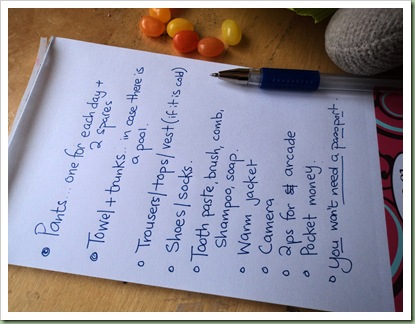 • Pants... one for each day +
2 spares
• Towel + trunks... in case there is
a pool.
• Trousers / tops / vest (if it is cold)
• Shoes / socks.
• Tooth paste, brush, comb,
Shampoo, soap.
• Warm jacket
• Camera
• 2ps for arcade
• Pocket money.
• You wont need a passport.